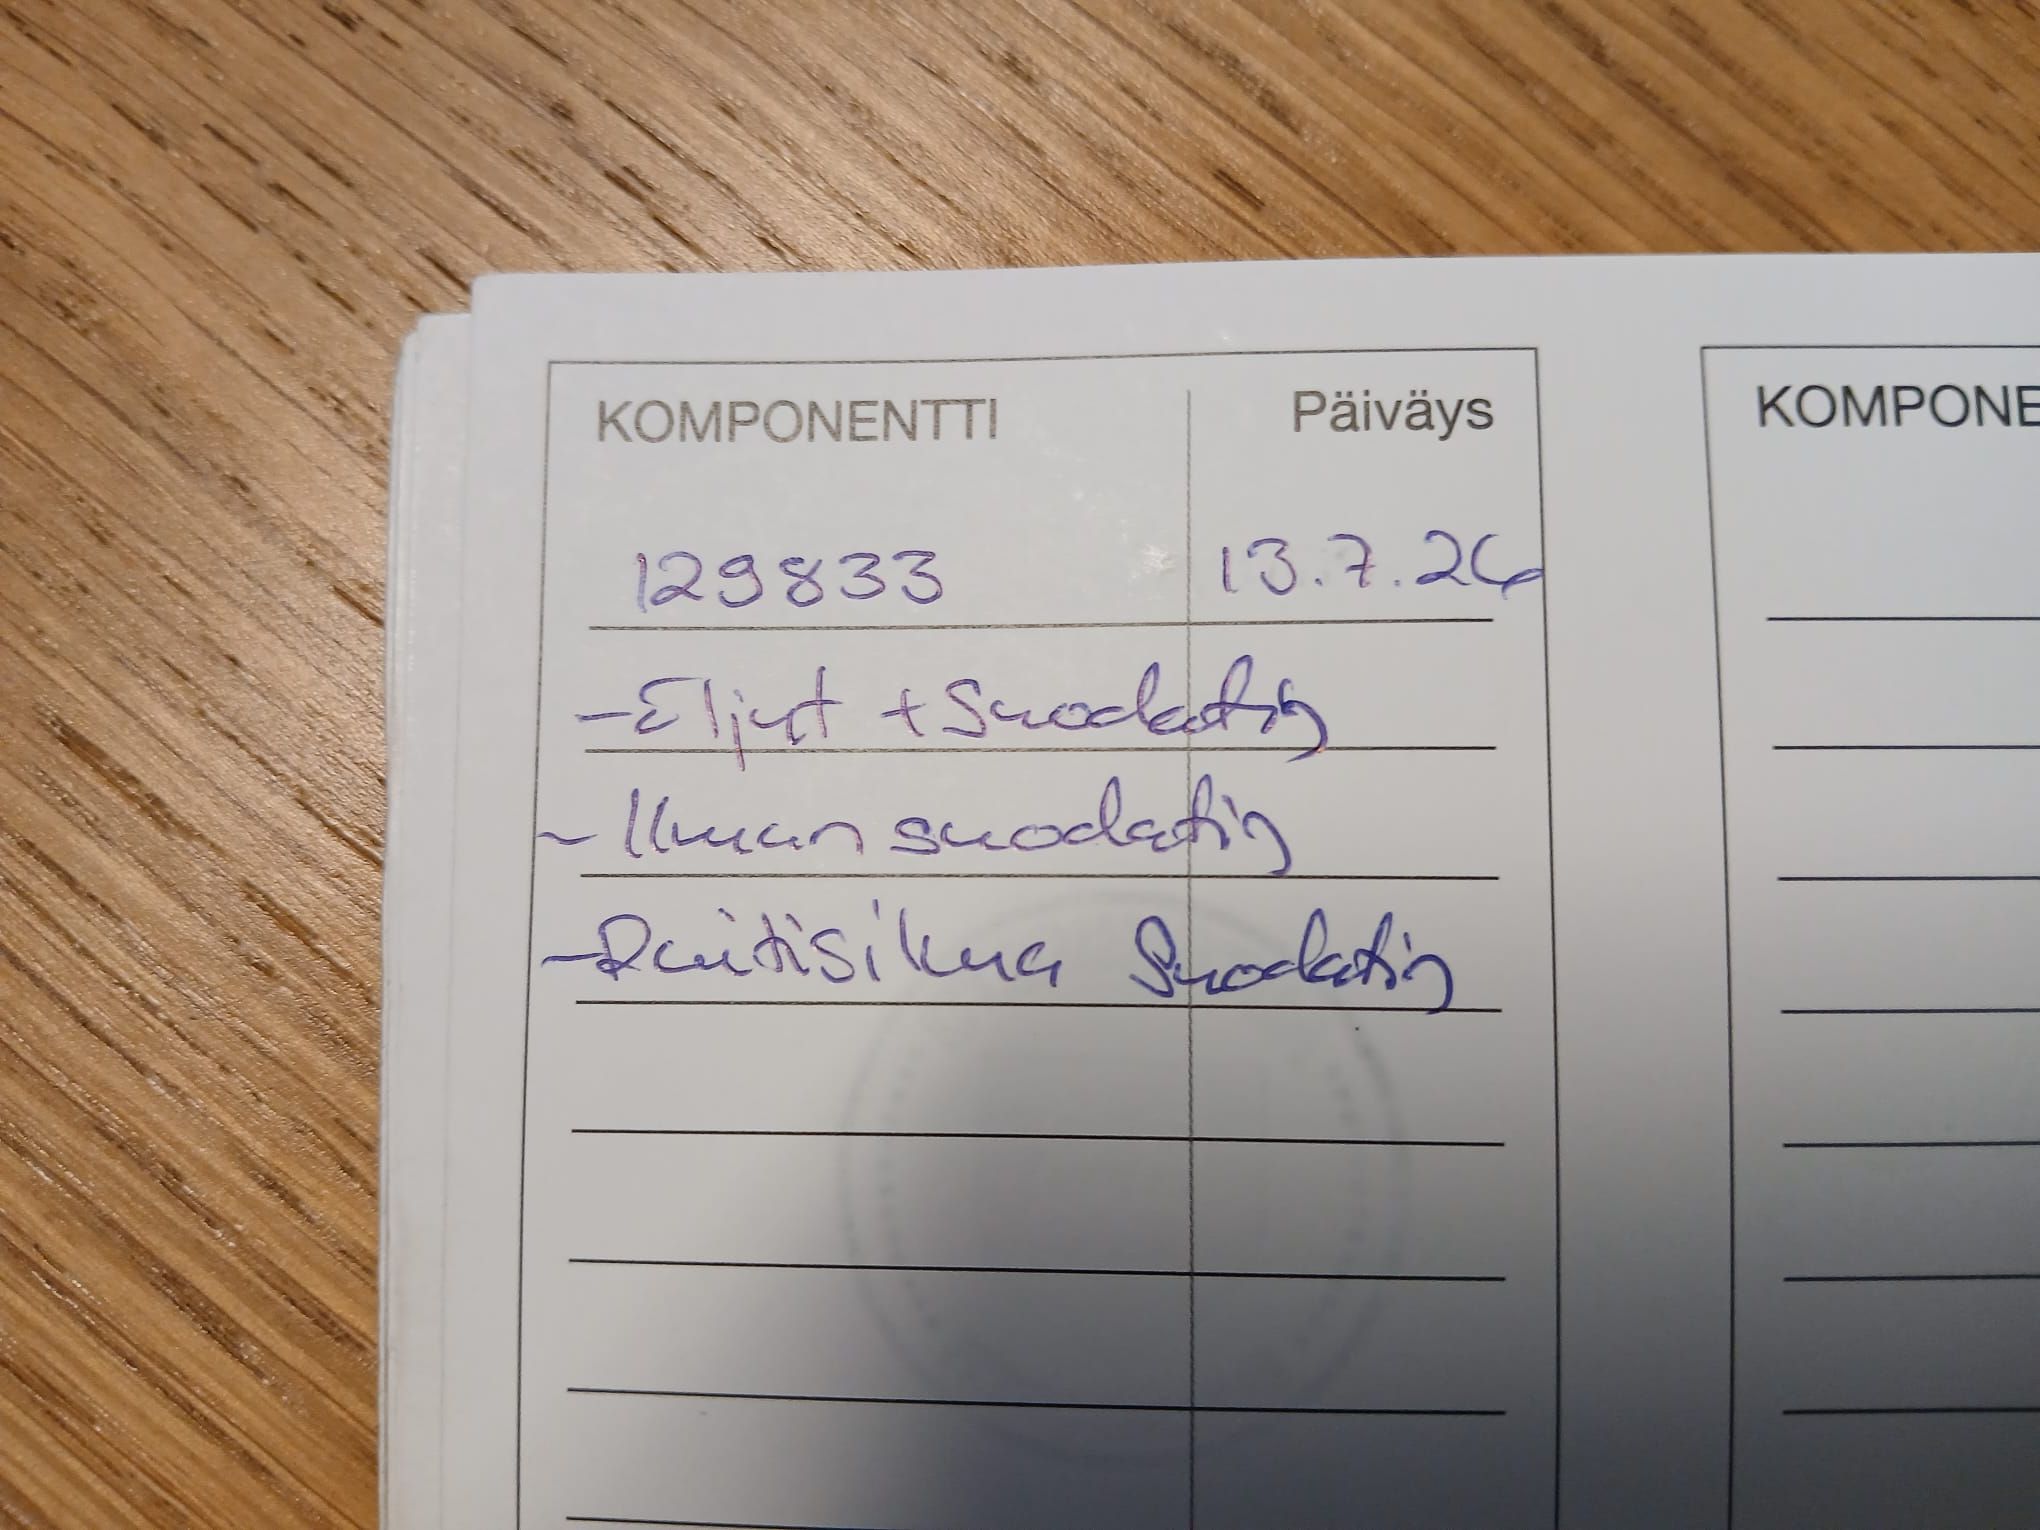 KOMPONENTTI Päiväys KOMPONE
129833 13.7.26
- Eljyt + Suodatin
- Ilman suodatin
- Raitisilma Suodatin